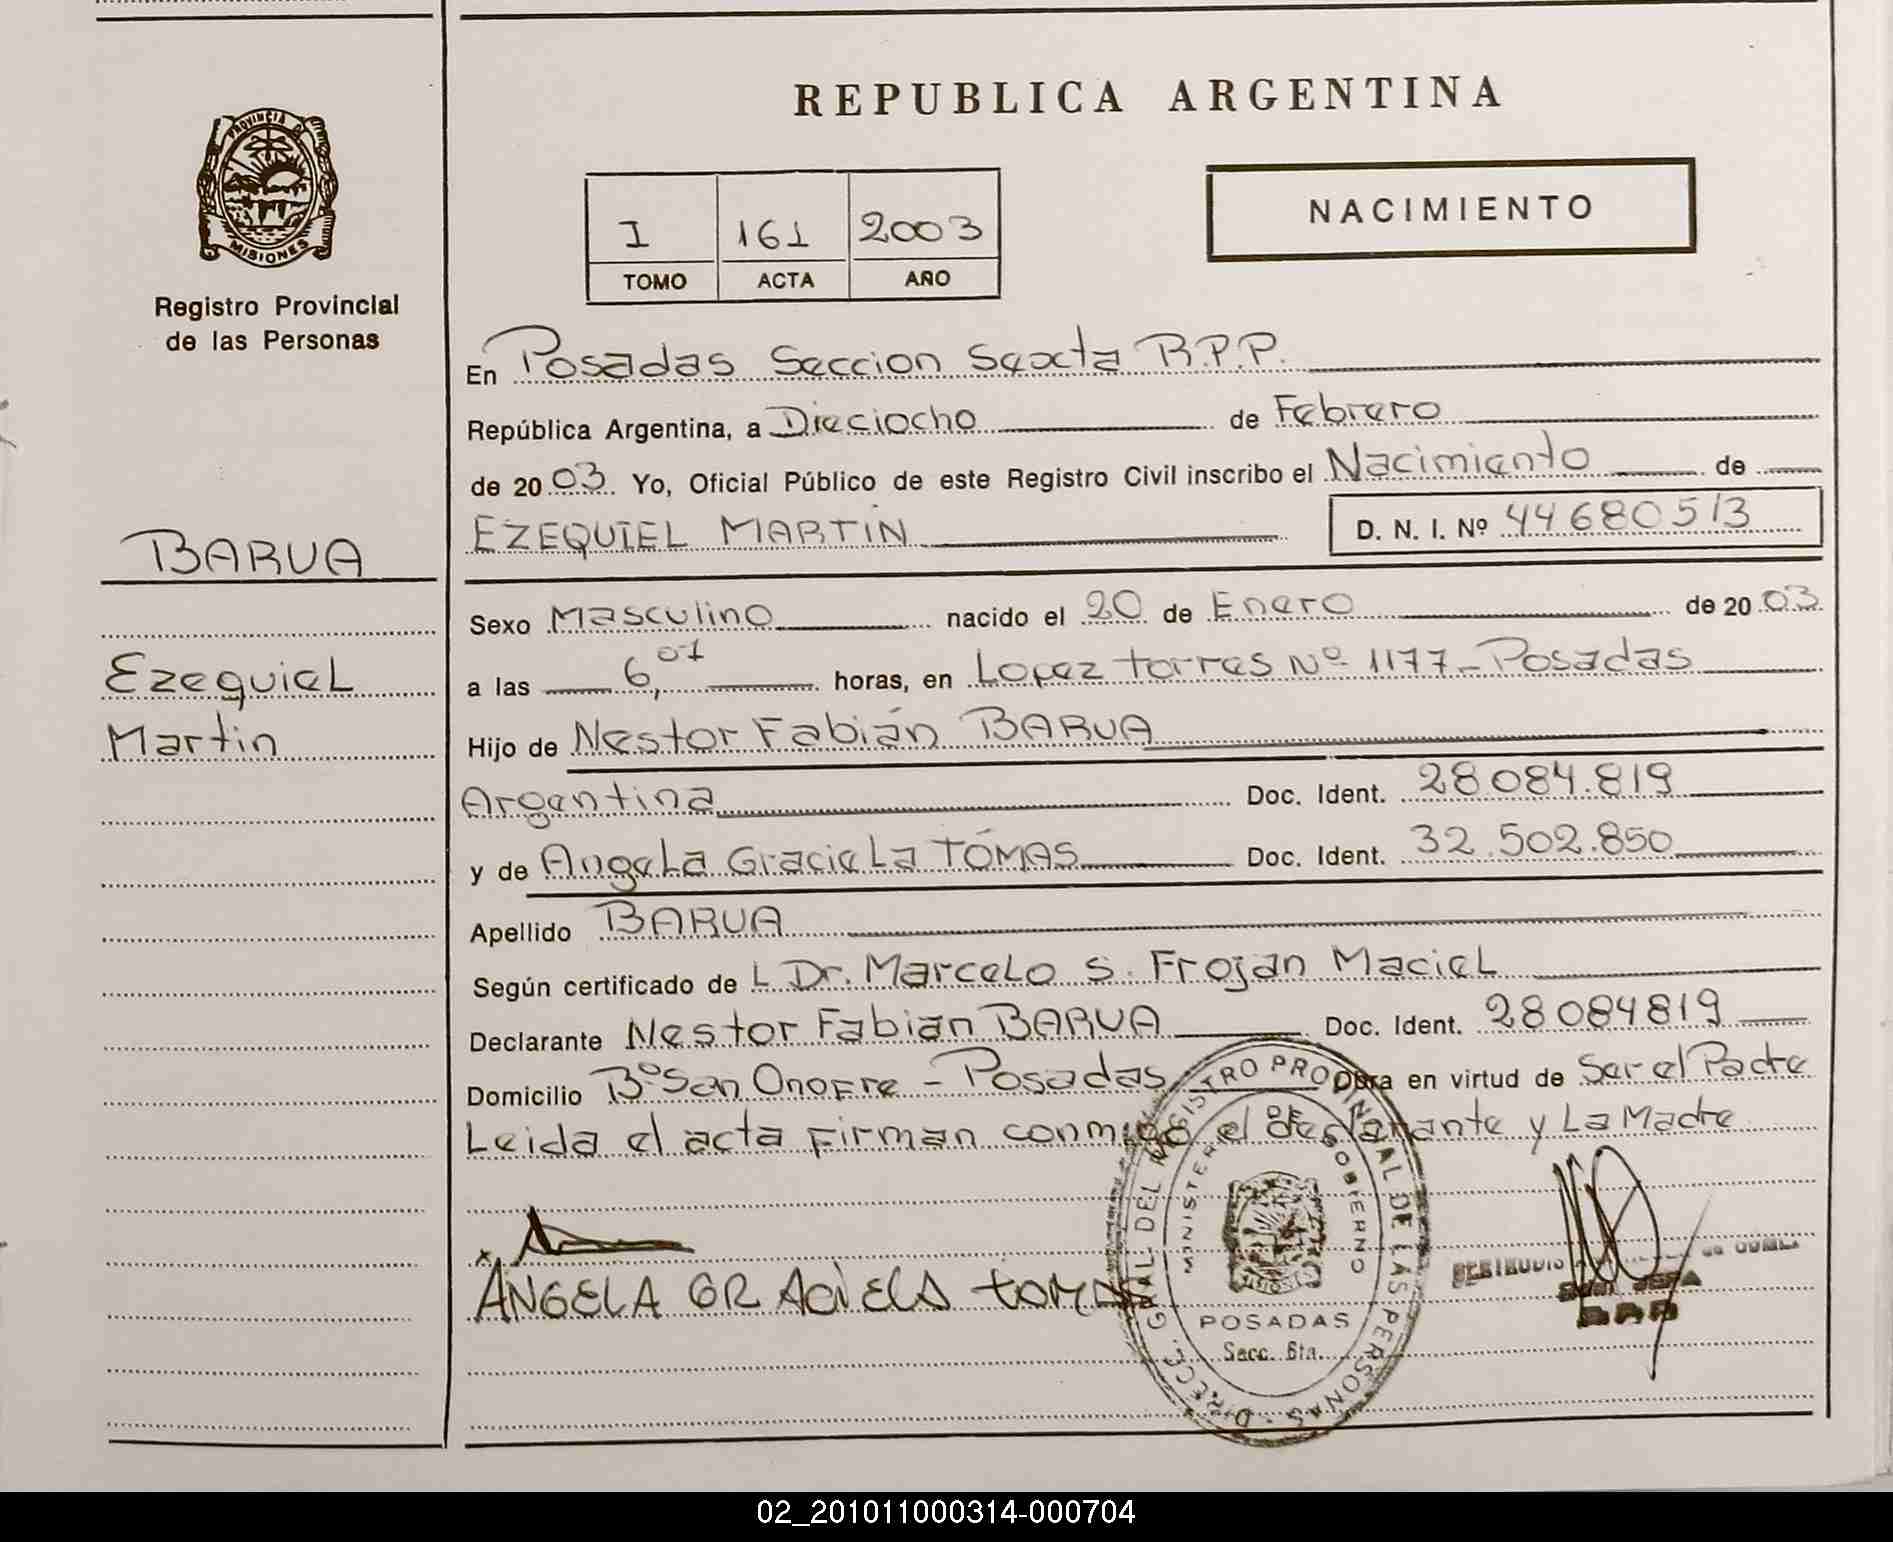 REPUBLICA ARGENTINA
PROVINCIA DE
MISIONES
Registro Provincial
de las Personas
I 161 2003
TOMO ACTA AÑO
NACIMIENTO
En Posadas Seccion Sexta R.P.P.
República Argentina, a Dieciocho de Febrero
de 2003 Yo, Oficial Público de este Registro Civil inscribo el Nacimiento de
EZEQUIEL MARTIN D. N. I. Nº 44680513
BARUA
Ezequiel
Martin
Sexo Masculino nacido el 20 de Enero de 2003
a las 6,07 horas, en Lopez torres Nº 1177 - Posadas
Hijo de Nestor Fabián BARUA
Argentina Doc. Ident. 28084.819
y de Angela Graciela TÓMAS Doc. Ident. 32.502.850
Apellido BARUA
Según certificado de L Dr. Marcelo S. Frojan Maciel
Declarante Nestor Fabian BARUA Doc. Ident. 28084819
Domicilio Bº San Onofre - Posadas Obra en virtud de Ser el Padre
Leida el acta firman conmigo el declarante y La Madre
ANGELA GRACIELA TOMAS
DIREC. GRAL DEL REGISTRO PROVINCIAL DE LAS PERSONAS
MINISTERIO DE GOBIERNO
POSADAS
Secc. 6ta.
02_201011000314-000704